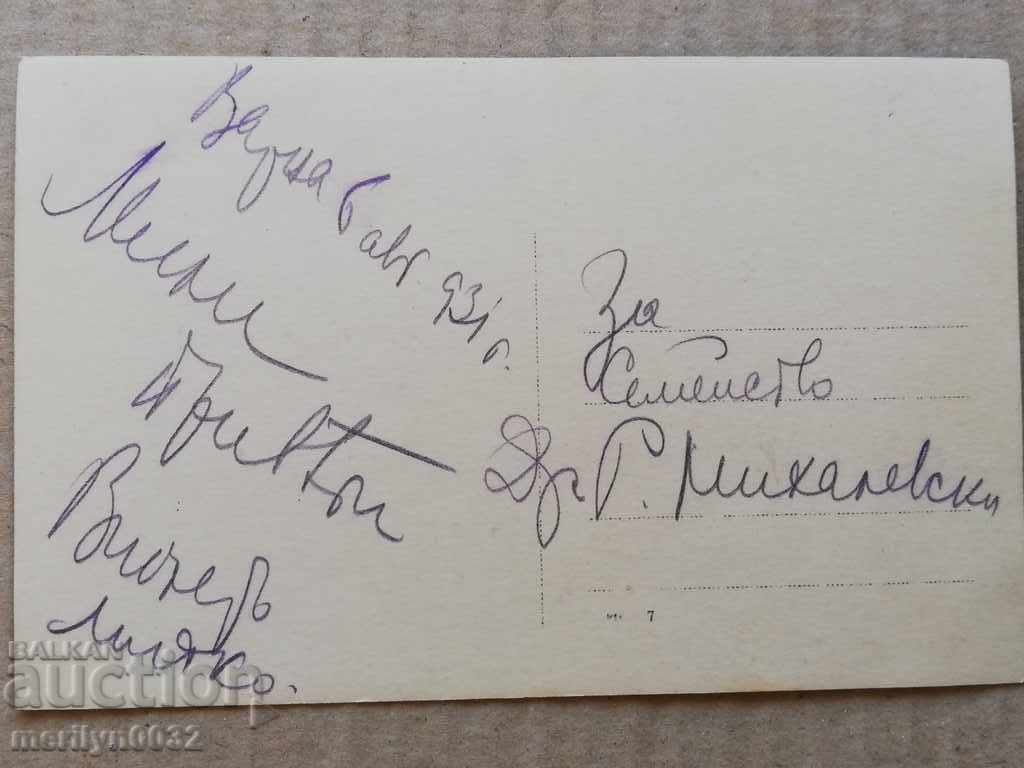 Варна 6 авг 931 г.
Мили
Внучедъ
Митко.
За
Семейство
Др Г. Михалевски
7
BALKAN
auction
merilyn0032